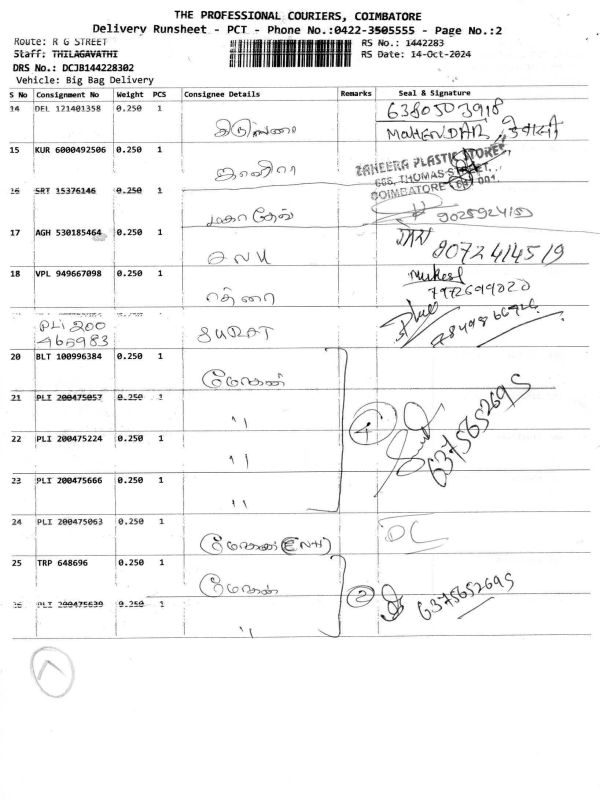 THE PROFESSIONAL COURIERS, COIMBATORE
Delivery Runsheet - PCT - Phone No.:0422-3505555 - Page No.:2
Route: R G STREET
RS No.: 1442283
Staff: THILAGAVATHI
RS Date: 14-Oct-2024
DRS No.: DCJB144228302
Vehicle: Big Bag Delivery
S No Consignment No Weight PCS Consignee Details Remarks Seal & Signature
14 DEL 121401358 0.250 1 6380503918
MAHENDAR
15 KUR 6000492506 0.250 1
ZAHEERA PLASTIC STORES
666, THOMAS STREET,
COIMBATORE 641 001.
16 SRT 15376146 0.250 1
மகாதேவ் 902592415
17 AGH 530185464 0.250 1 8072414519
18 VPL 949667098 0.250 1 Mukesh
7972699020
PLI 200
465983 SURAT
20 BLT 100996384 0.250 1 மோகன்
21 PLI 200475057 0.250 1 " 4 6375652695
22 PLI 200475224 0.250 1 "
23 PLI 200475666 0.250 1 "
24 PLI 200475063 0.250 1 மோகன் DC
25 TRP 648696 0.250 1 மோகன்
2 6375652695
26 PLI 200475639 0.250 1 "